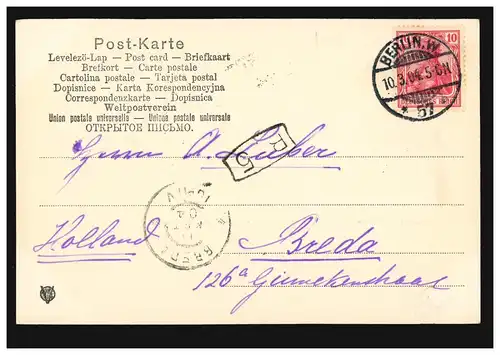 Post-Karte
Levelező-Lap — Post card — Briefkaart
Brefkort — Carte postale
Cartolina postale — Tarjeta postal
Dopisnice — Karta Korespondencyjna
Correspondenzkarte — Dopisnica
Weltpostverein
Union postale universelle — Unione postale universale
ОТКРЫТОЕ ПИСЬМО.
BERLIN, W.
10.3.04. 5-6N
* 57
10
Herrn A.
R 5
BREDA
Holland
Breda
126a Ginnekenstraat